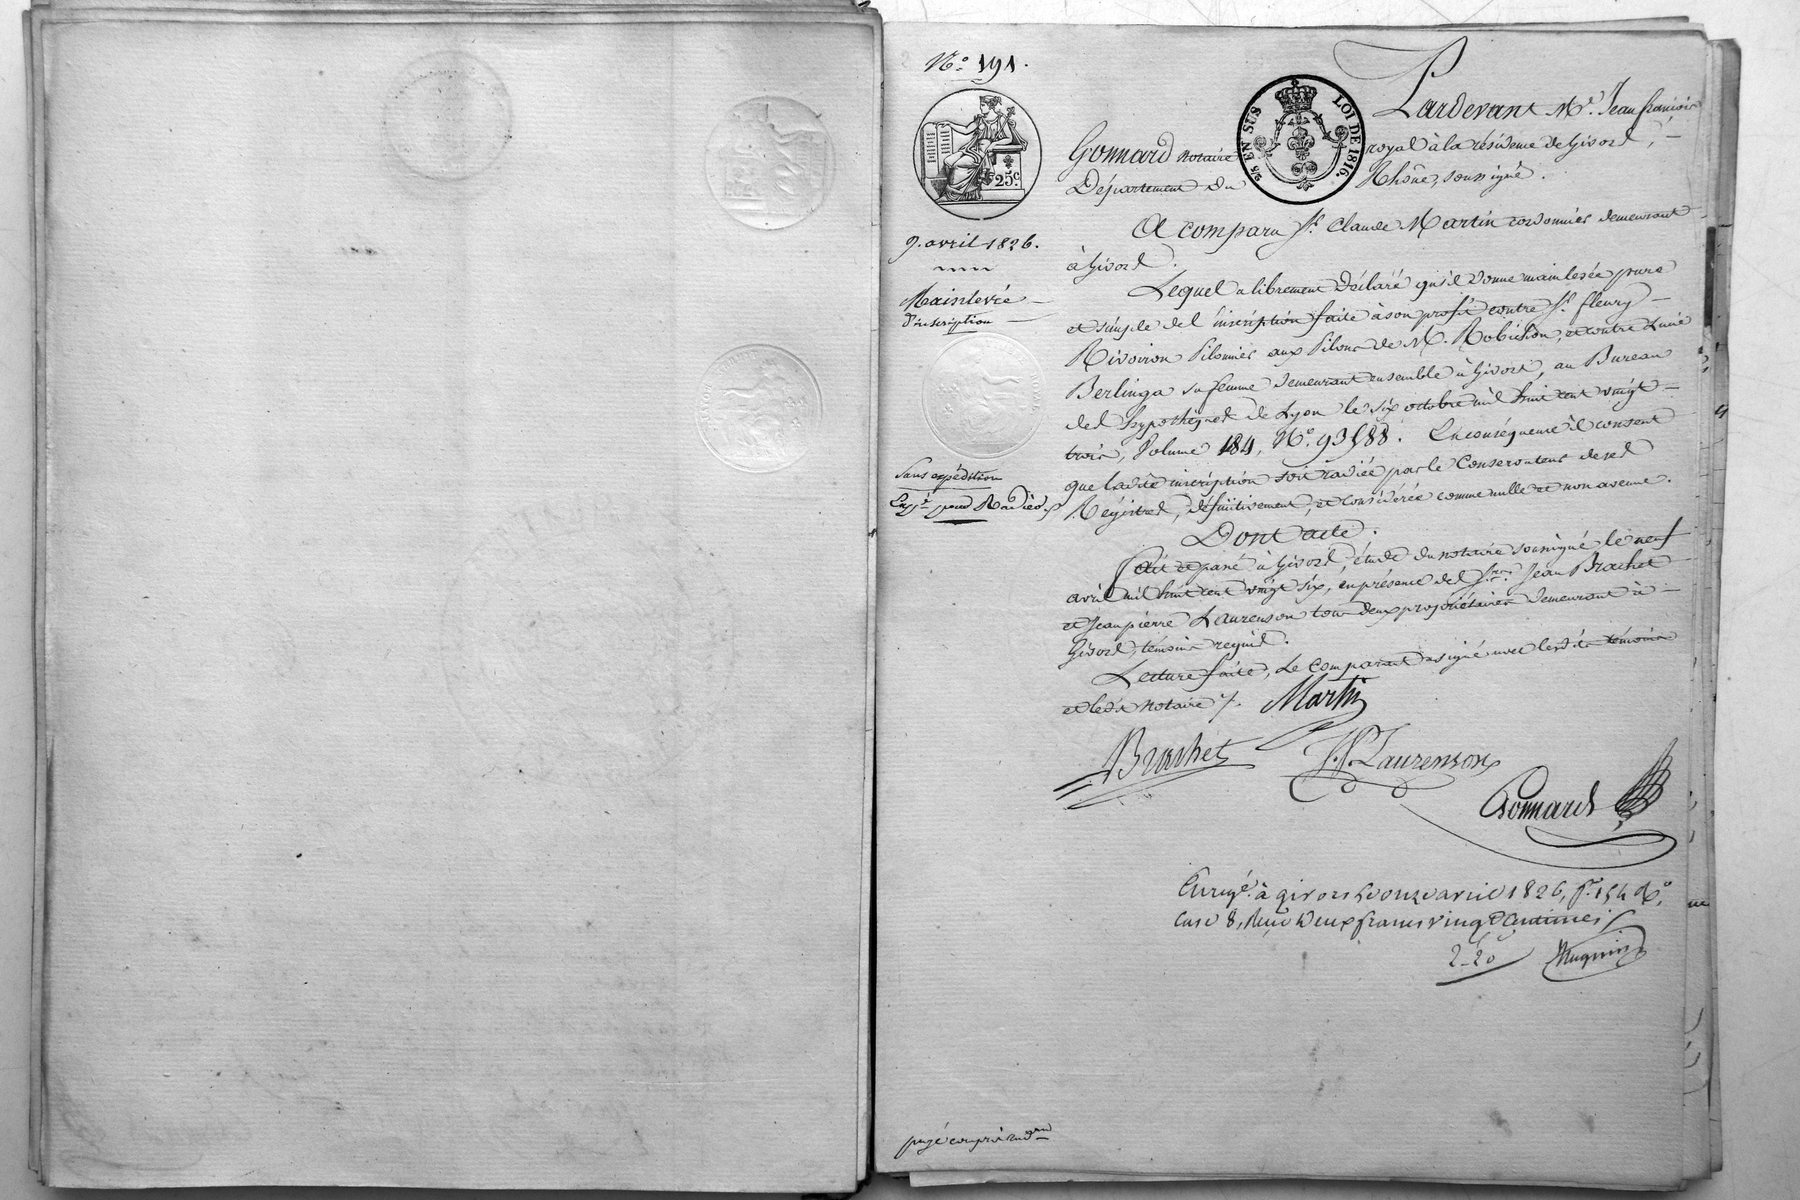 N.º 191.
25 EN SUS
LOI DE 1816.
25.c
Pardevant M.e Jean françois
Gonnard notaire royal à la résidence de Givors,
Département du Rhône, soussigné.
A comparu S.r Claude Martin cordonnier demeurant
à Givors.
9. avril 1826.
Mainlevée
d'inscription
Lequel a librement déclaré qu'il donne mainlevée pure
et simple de l'inscription faite à son profit contre S.r fleury
Rivoiron Pilonnier aux Pilons de M. Robichon, et contre Lucie
Berlinga sa femme demeurant ensemble à Givors, au Bureau
des hypothèques de Lyon le six octobre mil huit cent vingt
trois, Volume 184, N.º 93588. En conséquence il consent
que ladite inscription soit radiée par le Conservateur de ses
Registres, définitivement, et considérée comme nulle et non avenue.
Sans expédition
Exp.é pour Radied
Dont acte.
fait et passé à Givors, étude du notaire soussigné le neuf
avril mil huit cent vingt six, en présence des S.rs Jean Brachet
et Jean pierre Laurenson tous deux propriétaires demeurant à
Givors, témoins requis.
Lecture faite, Le comparant a signé avec lesdits témoins
et ledit notaire ./.
Martin
Brachet
J.P. Laurenson
Gonnard
Enregé. à givors le onze avril 1826, f.º 154 R.º
Case 8, Reçu deux francs vingt Centimes
2-20